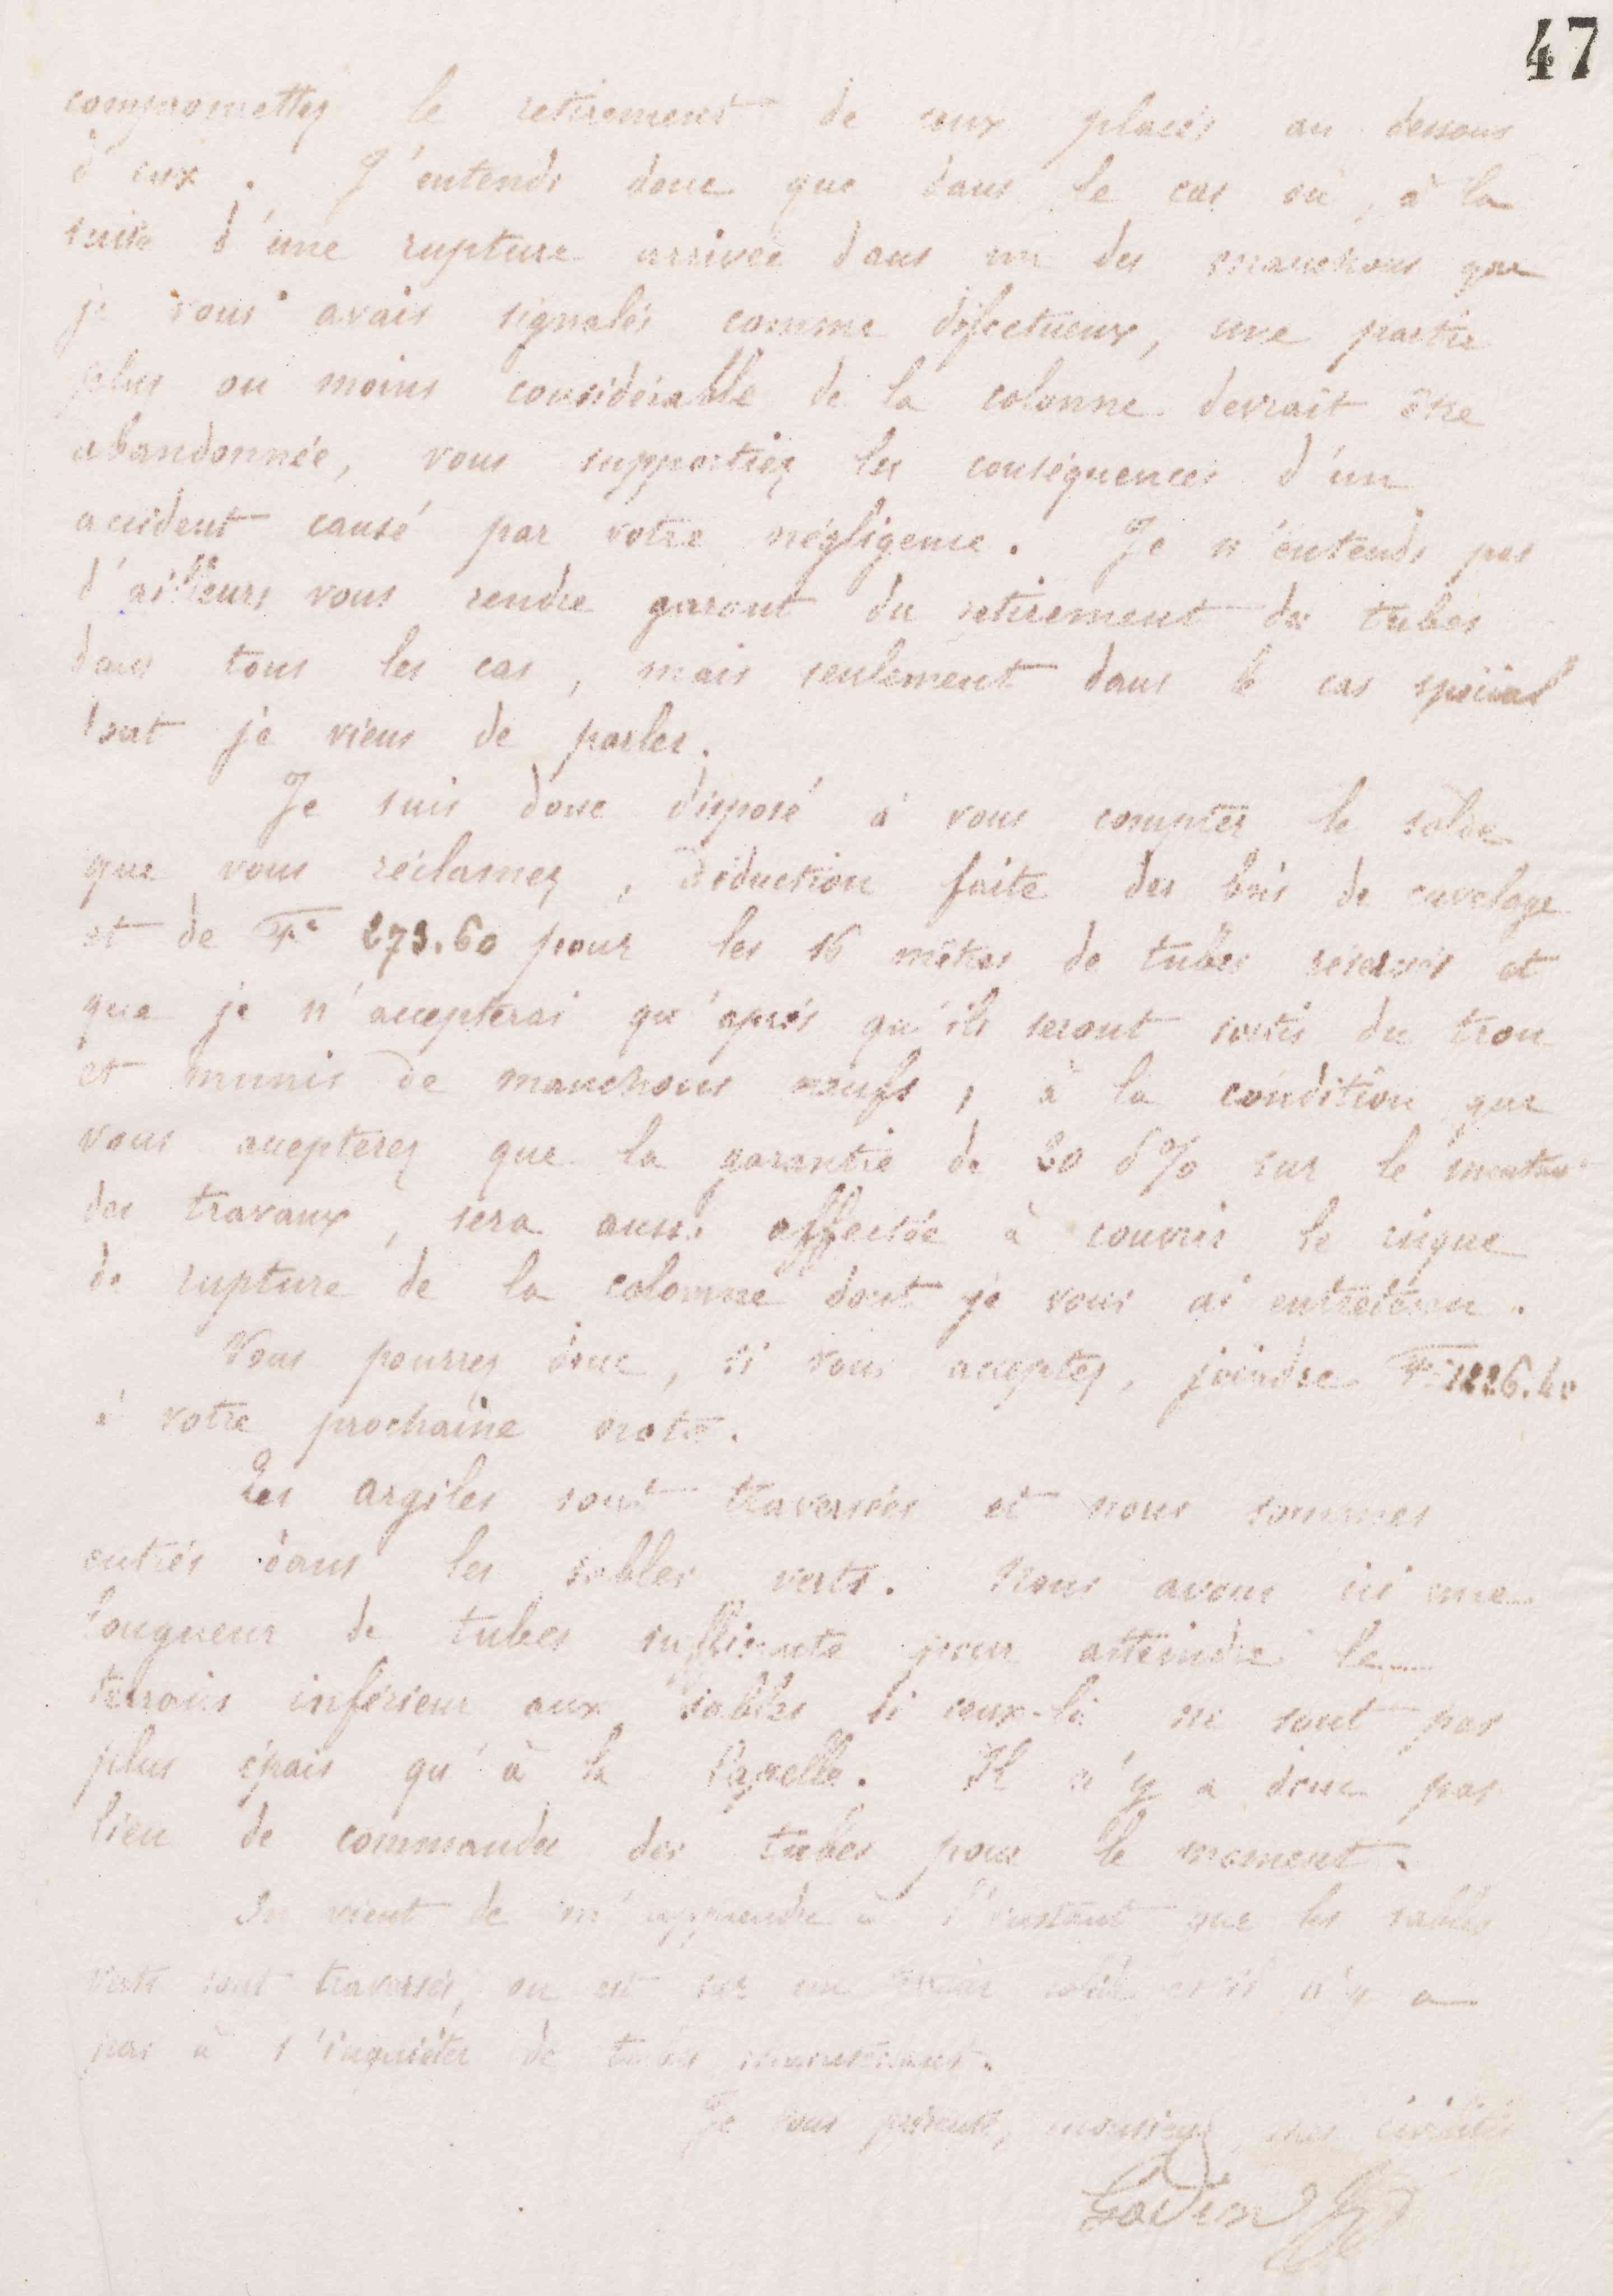 47
compromettez le retirement de ceux placés au dessous
d'eux. J'entends donc que dans le cas où, à la
suite d'une rupture arrivée dans un des manchons que
je vous avais signalés comme défectueux, une partie
plus ou moins considérable de la colonne devrait être
abandonnée, vous supportiez les conséquences d'un
accident causé par votre négligence. Je n'entends pas
d'ailleurs vous rendre garant du retirement des tubes
dans tous les cas, mais seulement dans le cas spécial
dont je viens de parler.
Je suis donc disposé à vous compter le solde
que vous réclamez, déduction faite des bris de cuvelage
et de Fs 273.60 pour les 16 mètres de tubes réservés et
que je n'accepterai qu'après qu'ils seront sortis du trou
et munis de manchons neufs, à la condition que
vous accepterez que la garantie de 20 % sur le montant
des travaux, sera aussi affectée à couvrir le risque
de rupture de la colonne dont je vous ai entretenu.
Vous pourrez donc, si vous acceptez, joindre Fs 1226.40
à votre prochaine note.
Les argiles sont traversées et nous sommes
entrés dans les sables verts. Nous avons ici une
longueur de tubes suffisante pour atteindre le
terrain inférieur aux sables si ceux-là ne sont pas
plus épais qu'à la Capelle. Il n'y a donc pas
lieu de commander des tubes pour le moment.
On vient de m'apprendre à l'instant que les sables
verts sont traversés, on est sur un terrain solide et il n'y a
pas à s'inquiéter de tubes maintenant.
Je vous présente, monsieur, mes civilités
Godin